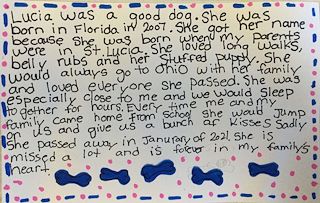 Lucia was a good dog. She was
born in Florida in 2007. She got her name
because She was born when my parents
were in St Lucia. She loved long walks,
belly rubs and her stuffed puppy. She
would always go to Ohio with her family
and loved everyone she passed. She was
especially close to me and we would Sleep
together for hours. Every time me and my
family came home from School She would Jump
on us and give us a bunch of Kisses. Sadly
She passed away in January of 2021. She is
missed a lot and is forever in my family's
heart.